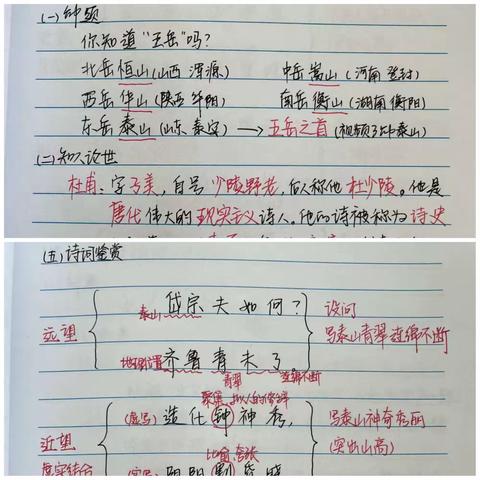 (一) 解题
你知道"五岳"吗?
北岳恒山(山西 浑源)
中岳嵩山(河南 登封)
西岳华山(陕西 华阴)
南岳衡山(湖南衡阳)
东岳泰山(山东 泰安) → 五岳之首(视频了解泰山)
(二) 知人论世
杜甫、字子美, 自号 少陵野老, 后人称他 杜少陵。他是
唐代伟大的现实主义诗人。他的诗被称为诗史
(五) 诗词鉴赏
泰山 岱宗夫如何? 设问
远望 写泰山青翠连绵不断
地理位置 齐鲁青未了
青翠 连绵不断
聚集 拟人
(虚写) 造化钟神秀, 写泰山神奇秀丽
近望 比喻 夸张 (突出山高)
虚实结合 阴阳割昏晓